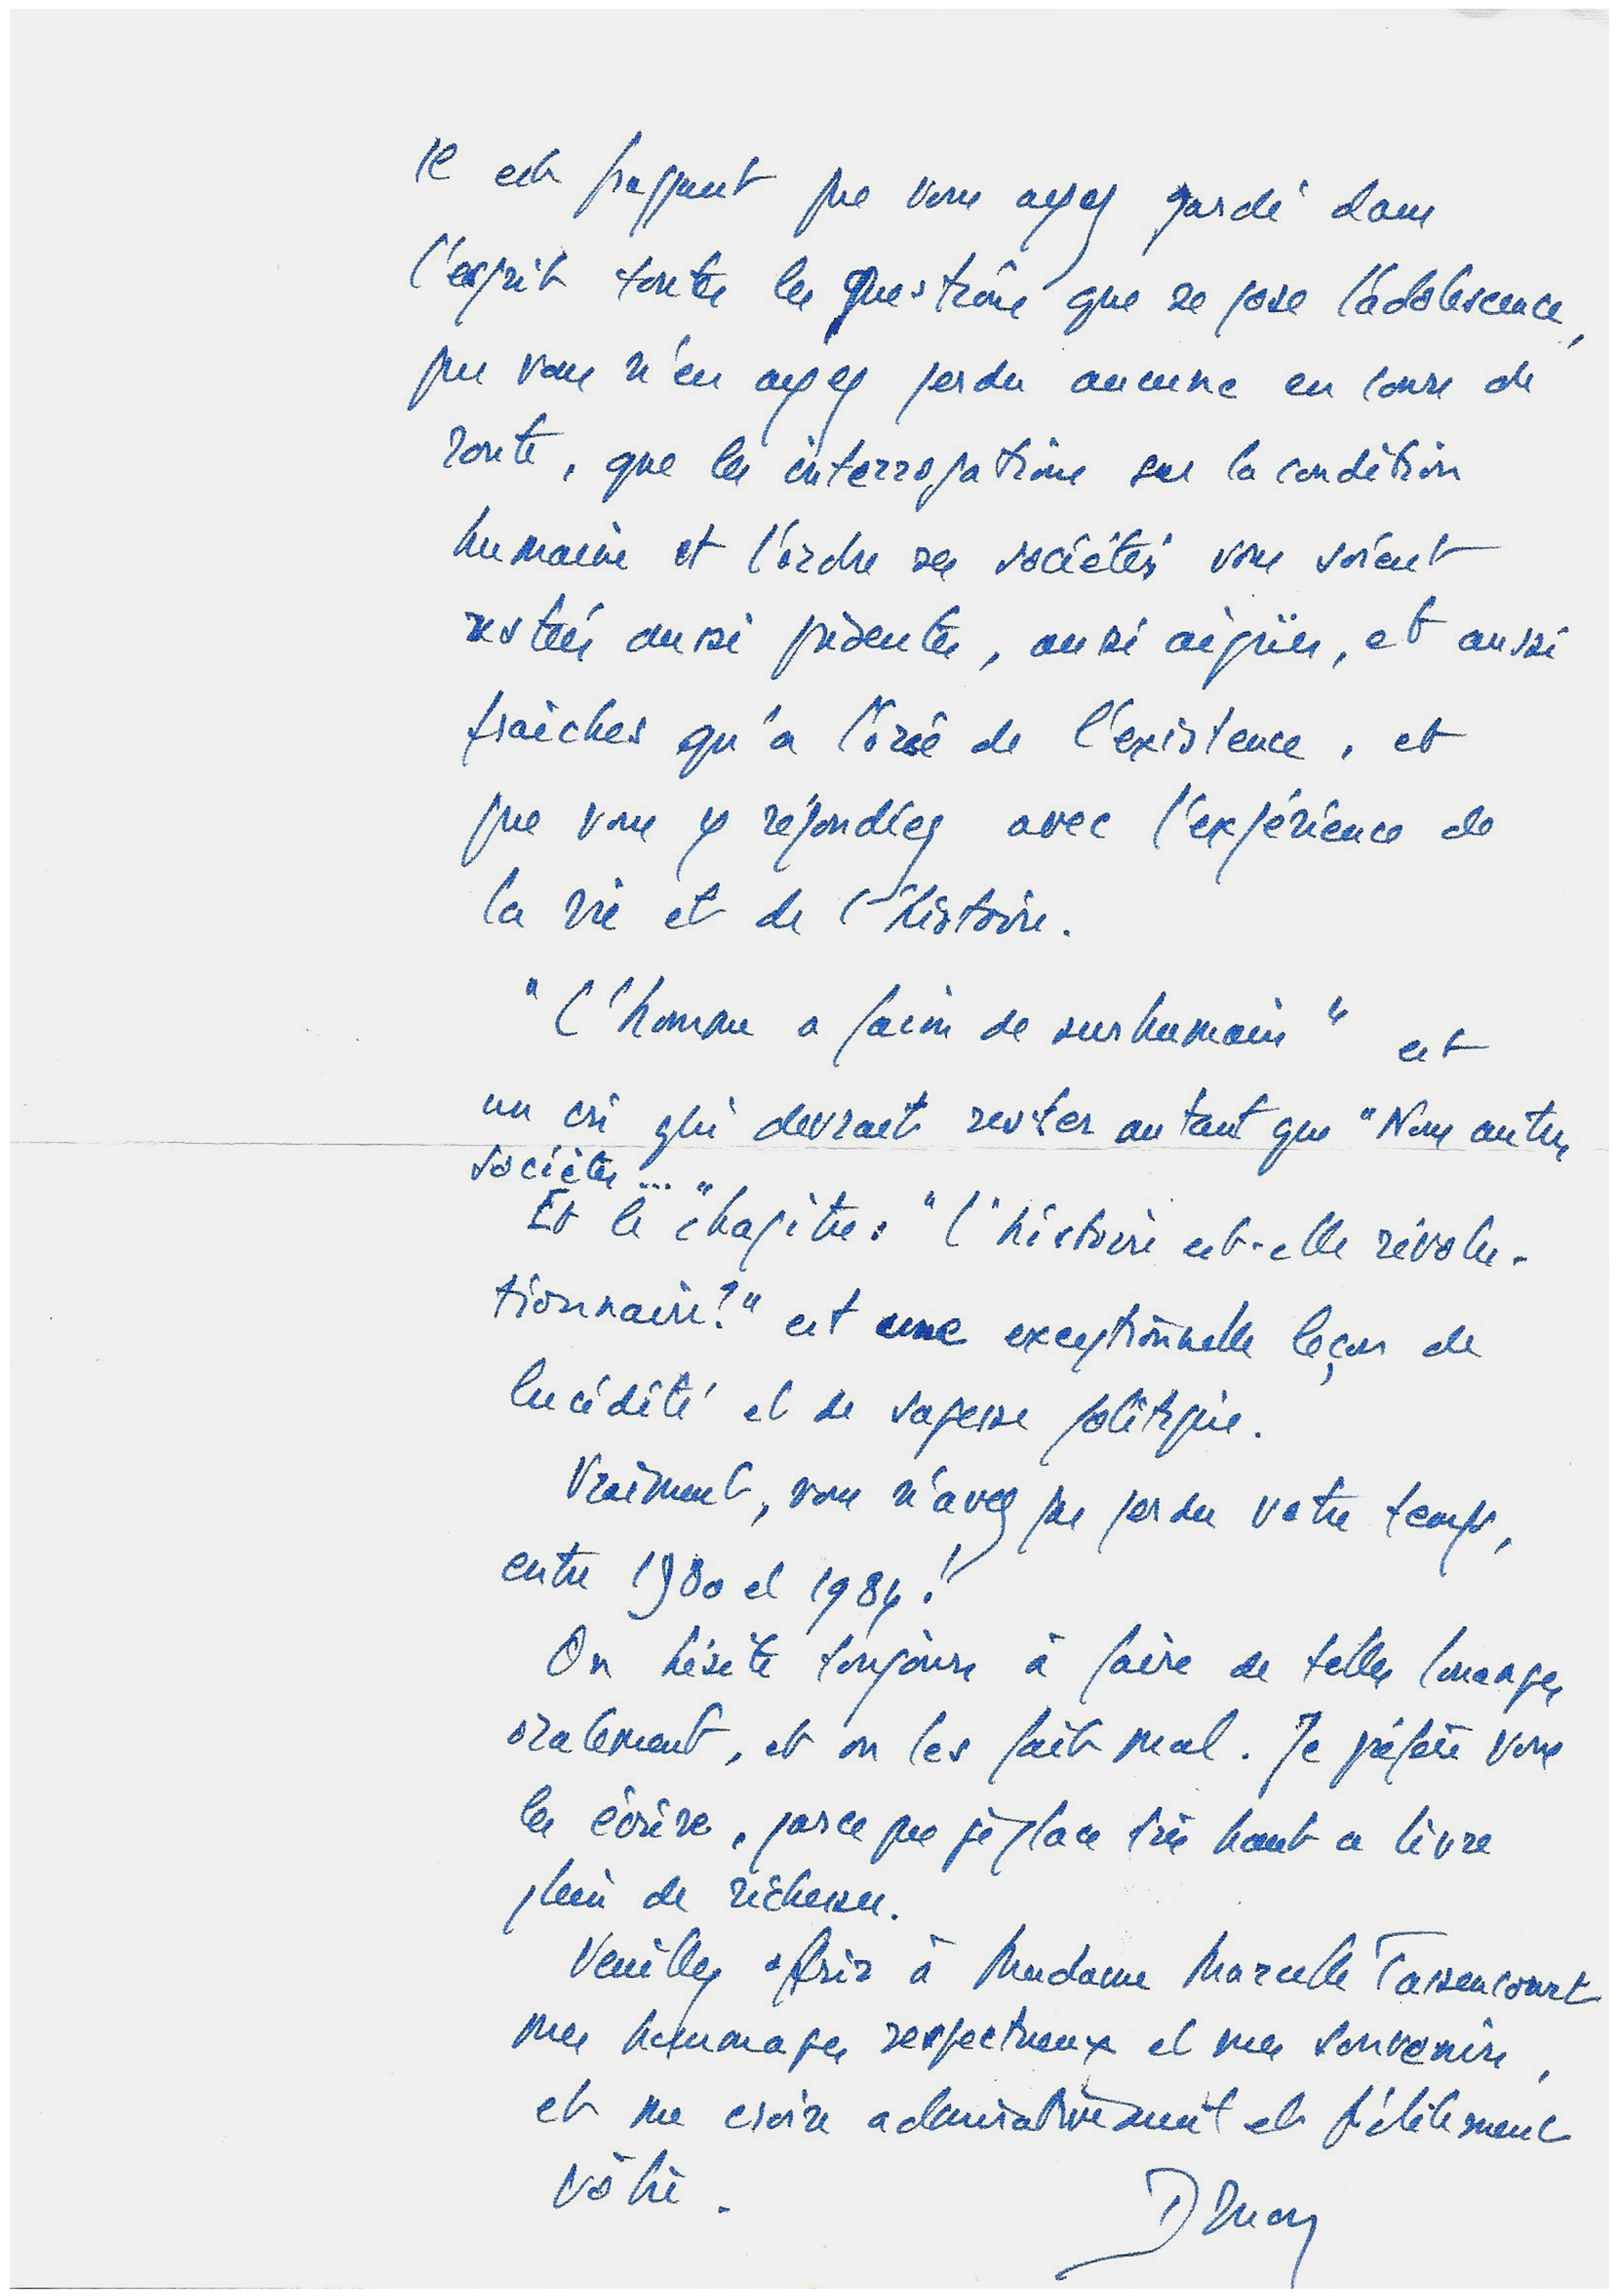 Il est frappant que vous ayez gardé dans
l'esprit toutes les questions que se pose l'adolescence,
que vous n'en ayez perdu aucune en cours de
route, que les interrogations sur la condition
humaine et l'ordre des sociétés vous soient
restées aussi présentes, aussi aigües, et aussi
fraîches qu'à l'orée de l'existence, et
que vous y répondiez avec l'expérience de
la vie et de l'histoire.
"L'homme a faim de surhumain" est
un cri qui devrait rester autant que "Nous autres
sociétés..."
Et le chapitre : "L'histoire est-elle révolu-
tionnaire?" est une exceptionnelle leçon de
lucidité et de sagesse politique.
Vraiment, vous n'avez pas perdu votre temps,
entre 1980 et 1984!
On hésite toujours à faire de telles louanges
oralement, et on les fait mal. Je préfère vous
les écrire, parce que je place très haut ce livre
plein de richesses.
Veuillez offrir à Madame Marcelle Tassencourt
mes hommages respectueux et mes souvenirs,
et me croire admirativement et fidèlement
vôtre.